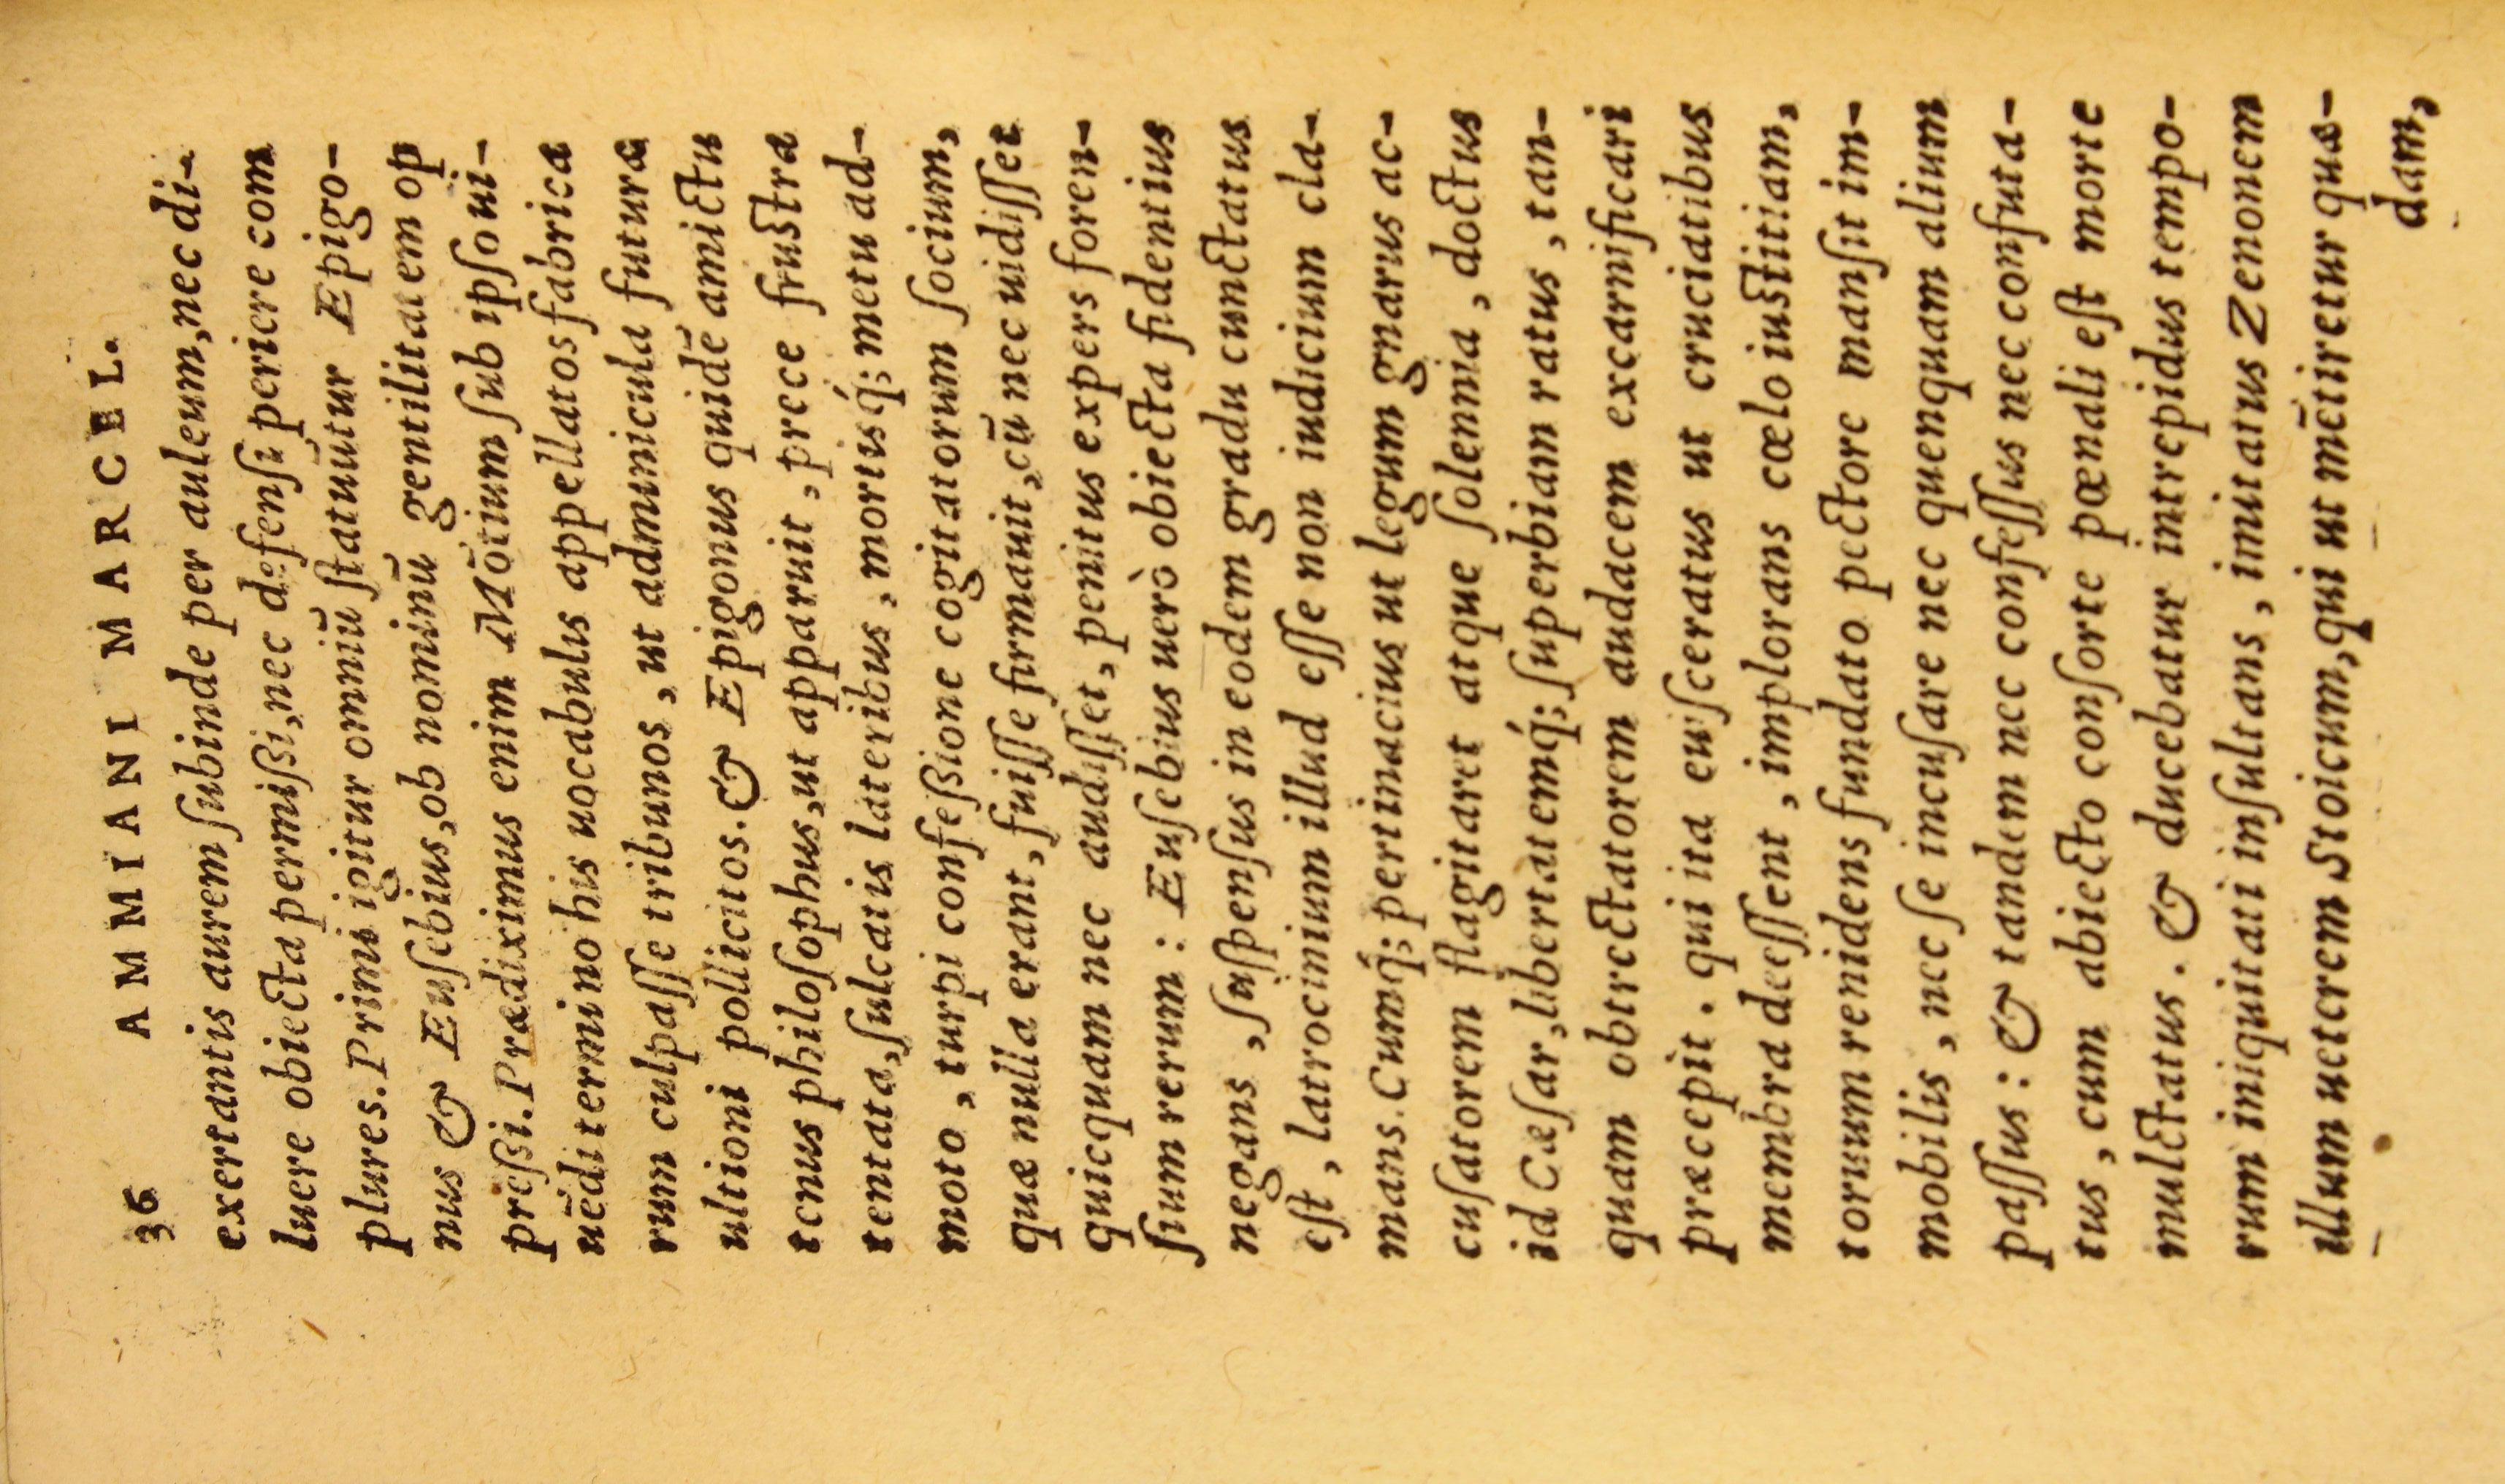 36 AMMIANI MARCEL.
exertantis aurem ſubinde per auleum, nec di-
luere obiecta permißi, nec defenſi periere com
plures. Primi igitur omniū ſtatuūtur Epigo-
nus & Euſebius, ob nominū gentilitatem op
preßi. Prædiximus enim Mōtium ſub ipſo ui-
uēdi termino his uocabulis appellatos fabricæ
rum culpaſſe tribunos, ut adminicula futuræ
ultioni pollicitos. & Epigonus quidē amictu
tenus philoſophus, ut apparuit, prece fruſtra
tentata, ſulcatis lateribus, mortisq́; metu ad-
moto, turpi confeßione cogitatorum ſocium,
quæ nulla erant, fuiſſe firmauit, cū nec uidiſſet
quicquam nec audiſſet, penitus expers foren-
ſium rerum: Euſebius uerò obiecta fidentius
negans, ſuſpenſus in eodem gradu cunctatus
eſt, latrocinium illud eſſe non iudicium cla-
mans. Cumq́; pertinacius ut legum gnarus ac-
cuſatorem flagitaret atque ſolennia, doctus
id Cæſar, libertatemq́; ſuperbiam ratus, tan-
quam obtrectatorem audacem excarnificari
præcepit. qui ita euiſceratus ut cruciatibus
membra deeſſent, implorans cœlo iuſtitiam,
toruum renidens fundato pectore manſit im-
mobilis, nec ſe incuſare nec quenquam alium
paſſus: & tandem nec confeſſus nec confuta-
tus, cum abiecto conſorte pœnali eſt morte
mulctatus. & ducebatur intrepidus tempo-
rum iniquitati inſultans, imitatus Zenonem
illum ueterem Stoicum, qui ut mētiretur quæ-
dam,